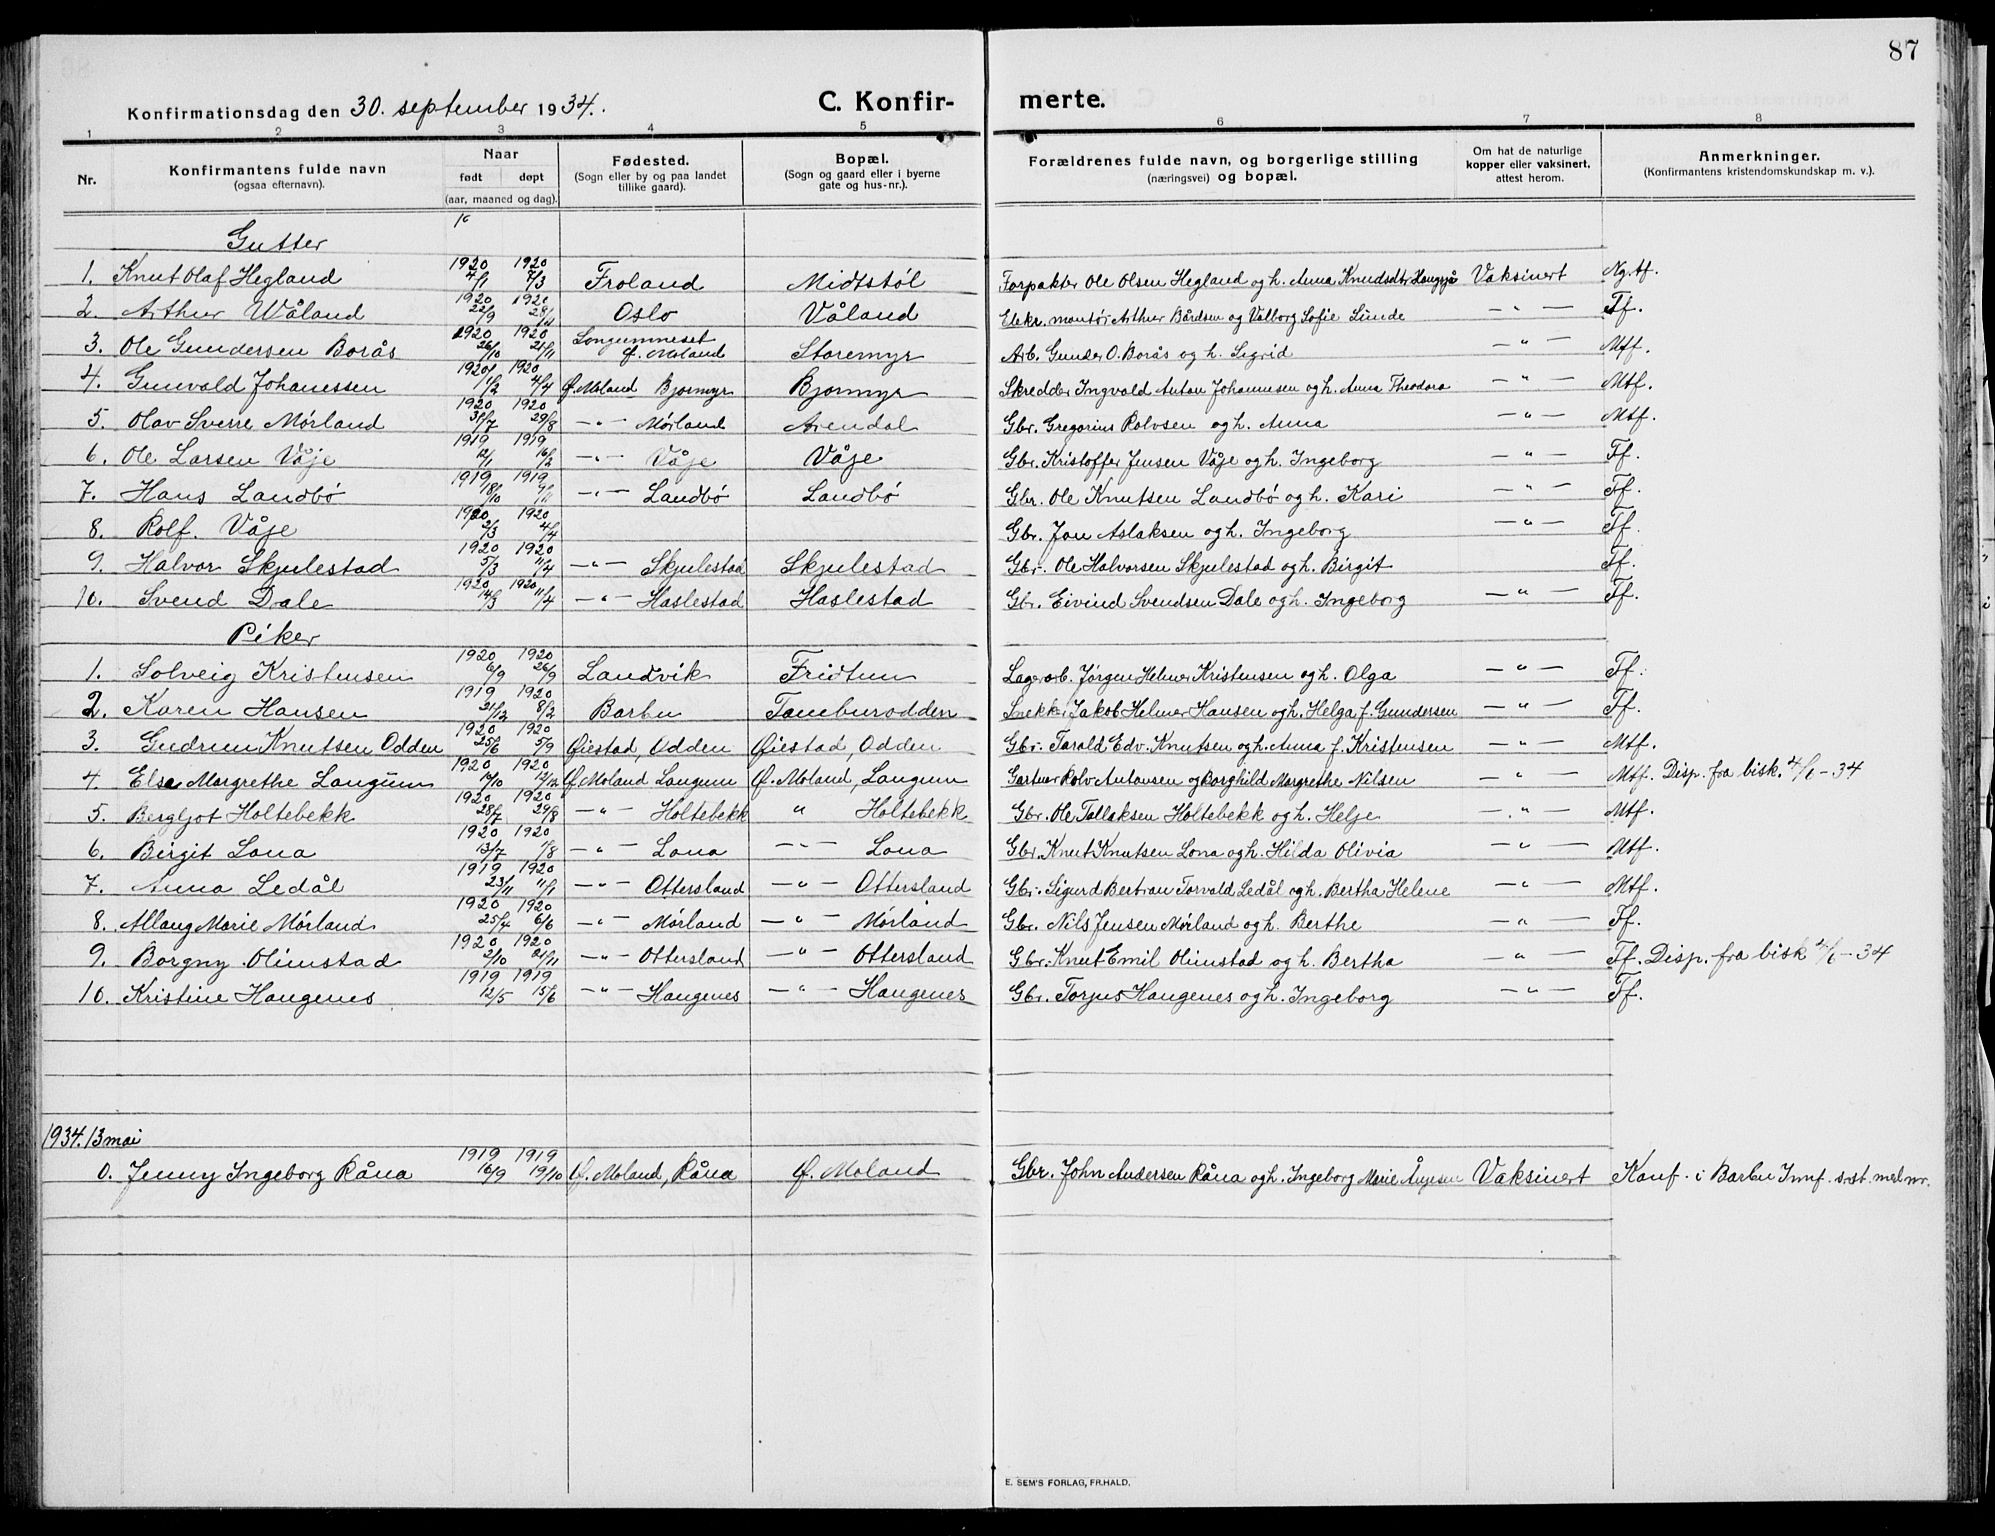 87
Konfirmationsdag den 30. september 1934. C. Konfir- merte.
1 2 3 4 5 6 7 8
Nr. Konfirmantens fulde navn (ogsaa efternavn). Naar født døpt (aar, maaned og dag). Fødested. (Sogn eller by og paa landet tillike gaard). Bopæl. (Sogn og gaard eller i byerne gate og hus-nr.). Forældrenes fulde navn, og borgerlige stilling (næringsvei) og bopæl. Om hat de naturlige kopper eller vaksinert, attest herom. Anmerkninger. (Konfirmantens kristendomskundskap m. v.).
Gutter
1. Knut Olaf Hegland 1920 4/1 1920 7/3 Froland Midtstøl Forpakter Ole Olsen Hegland og h. Anna Knudsdtr Vaksinert Ng. tf.
2. Arthur Wåland 1920 22/9 1920 Oslo Våland Elekr. montør Arthur Bårdsen og Valborg Sofie Lunde - " - Tf.
3. Ole Gundersen Borås 1920 26/10 1920 21/11 Longumneset Ø. Moland Storemyr Arb. Gunder O. Borås og h. Sigrid - " - Mtf.
4. Gunvald Johanessen 1920 1/2 1920 4/4 Ø. Moland Bjormyr Bjormyr Skredder Ingvald Anton Johannesen og h. Anna Theodora - " - Mtf.
5. Olav Sverre Mørland 1920 31/7 1920 29/8 - " - Mørland Arendal Gbr. Gregorius Rolvsen og h. Anna - " - Mtf.
6. Ole Larsen Våje 1919 12/1 1919 16/2 - " - Våje Våje Gbr. Kristoffer Jensen Våje og h. Ingeborg - " - Tf.
7. Hans Landbø 1919 18/10 1919 9/11 - " - Landbø Landbø Gbr. Ole Knutsen Landbø og h. Kari - " - Tf.
8. Rolf Våje 1920 2/3 1920 4/4 Gbr. Jon Aslaksen og h. Ingeborg - " - Tf.
9. Halvor Skjulestad 1920 5/3 1920 11/4 - " - Skjulestad Skjulestad Gbr. Ole Halvorsen Skjulestad og h. Birgit - " - Tf.
10. Svend Dale 1920 14/3 1920 11/4 - " - Haslestad Haslestad Gbr. Eivind Svendsen Dale og h. Ingeborg - " - Tf.
Piker
1. Solveig Kristensen 1920 6/9 1920 26/9 Landvik Fridtun Lagerarb. Jørgen Helmer Kristensen og h. Olga - " - Tf.
2. Karen Hansen 1919 21/12 1920 8/2 Barbu Tamburodden Snekk. Jakob Helmer Hansen og h. Helga f. Gundersen - " - Tf.
3. Gudrun Knutsen Odden 1920 25/6 1920 5/9 Øiestad, Odden Øiestad, Odden Gbr. Tarald Edv. Knutsen og h. Anna f. Kristensen - " - Mtf.
4. Else Margrethe Langum 1920 14/10 1920 12/12 Ø. Moland Langum Ø. Moland, Langum Gartner Rolv Antonsen og Borghild Margrethe Nilsen - " - Mtf. Disp. fra bisk. 4/6-34
5. Bergljot Holtebekk 1920 28/7 1920 29/8 - " - Holtebekk " Holtebekk Gbr. Ole Tallaksen Holtebekk og h. Helje - " - Mtf.
6. Birgit Lona 1920 13/7 1920 1/8 - " - Lona - " - Lona Gbr. Knut Knutsen Lona og h. Hilda Olivia - " - Mtf.
7. Anna Ledål 1919 23/11 1920 11/1 - " - Ottersland - " - Ottersland Gbr. Sigurd Bertran Torvald Ledål og h. Bertha Helene - " - Mtf.
8. Allaug Marie Mørland 1920 25/4 1920 6/6 - " - Mørland - " - Mørland Gbr. Nils Jensen Mørland og h. Berthe - " - Tf.
9. Borgny Olimstad 1920 2/10 1920 21/11 - " - Ottersland - " - Ottersland Gbr. Knut Emil Olimstad og h. Bertha - " - Tf. Disp. fra bisk 4/6-34
10. Kristine Haugenes 1919 12/5 1919 15/6 - " - Haugenes - " - Haugenes Gbr. Torjus Haugenes og h. Ingeborg - " - Tf.
1934. 13 mai
0. Jenny Ingeborg Råna 1919 16/9 1919 19/10 Ø. Moland, Råna Ø. Moland Gbr. John Andersen Råna og h. Ingeborg Marie Vaksinert Konf. i Barbu Innf. sist. med nr.
E. SEM'S FORLAG, FR.HALD.